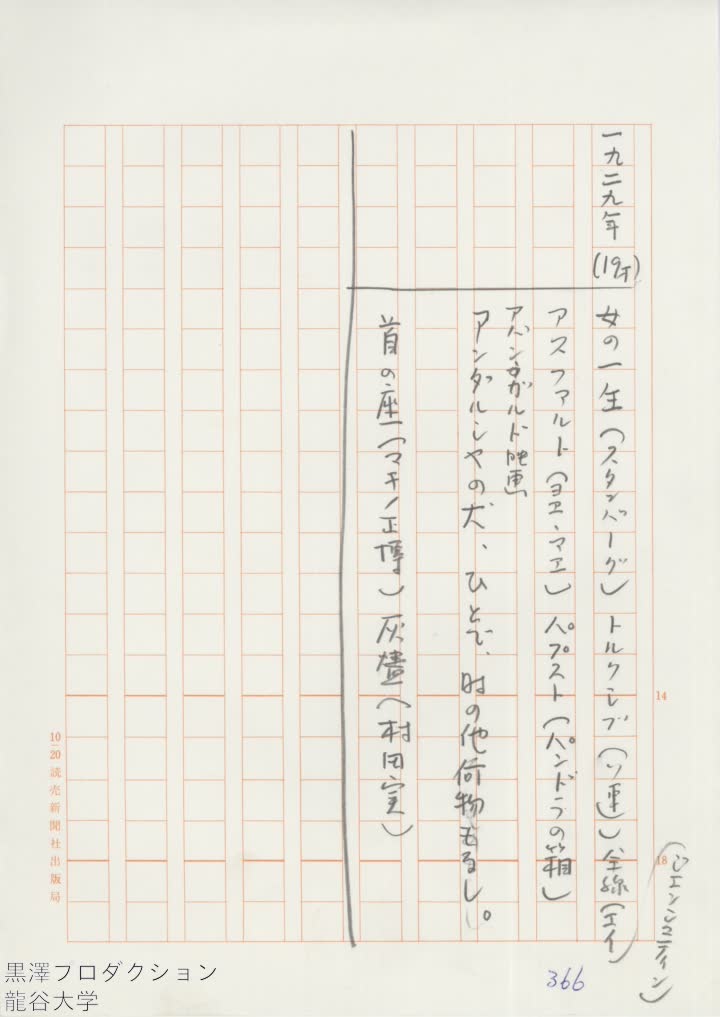 一九二九年(19才)
女の一生(スタンバーグ)トルクシブ(ソ連)全線(エイ
(ジェンシュティン)
アスファルト(ヨエ・マエ)パプスト(パンドラの箱)
アバンガルド映画
アンダルシヤの犬、ひとで、時の他荷物もるし。
首の座(マキノ正博)灰燼(村田実)
14
18
10―20 読売新聞社出版局
366
黒澤プロダクション
龍谷大学